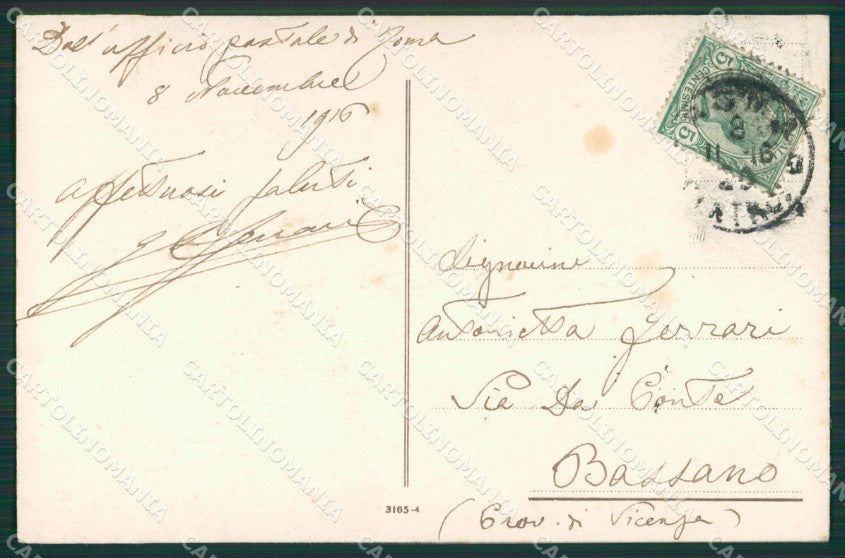 Dall'ufficio postale di Roma
8 Novembre
1916
affettuosi saluti
Signorine
Antonietta Ferrari
Via Da Ponte
Bassano
(Prov. di Vicenza)
3165-4
5
CENTESIMI
5
8
11 16
CARTOLINOMANIA